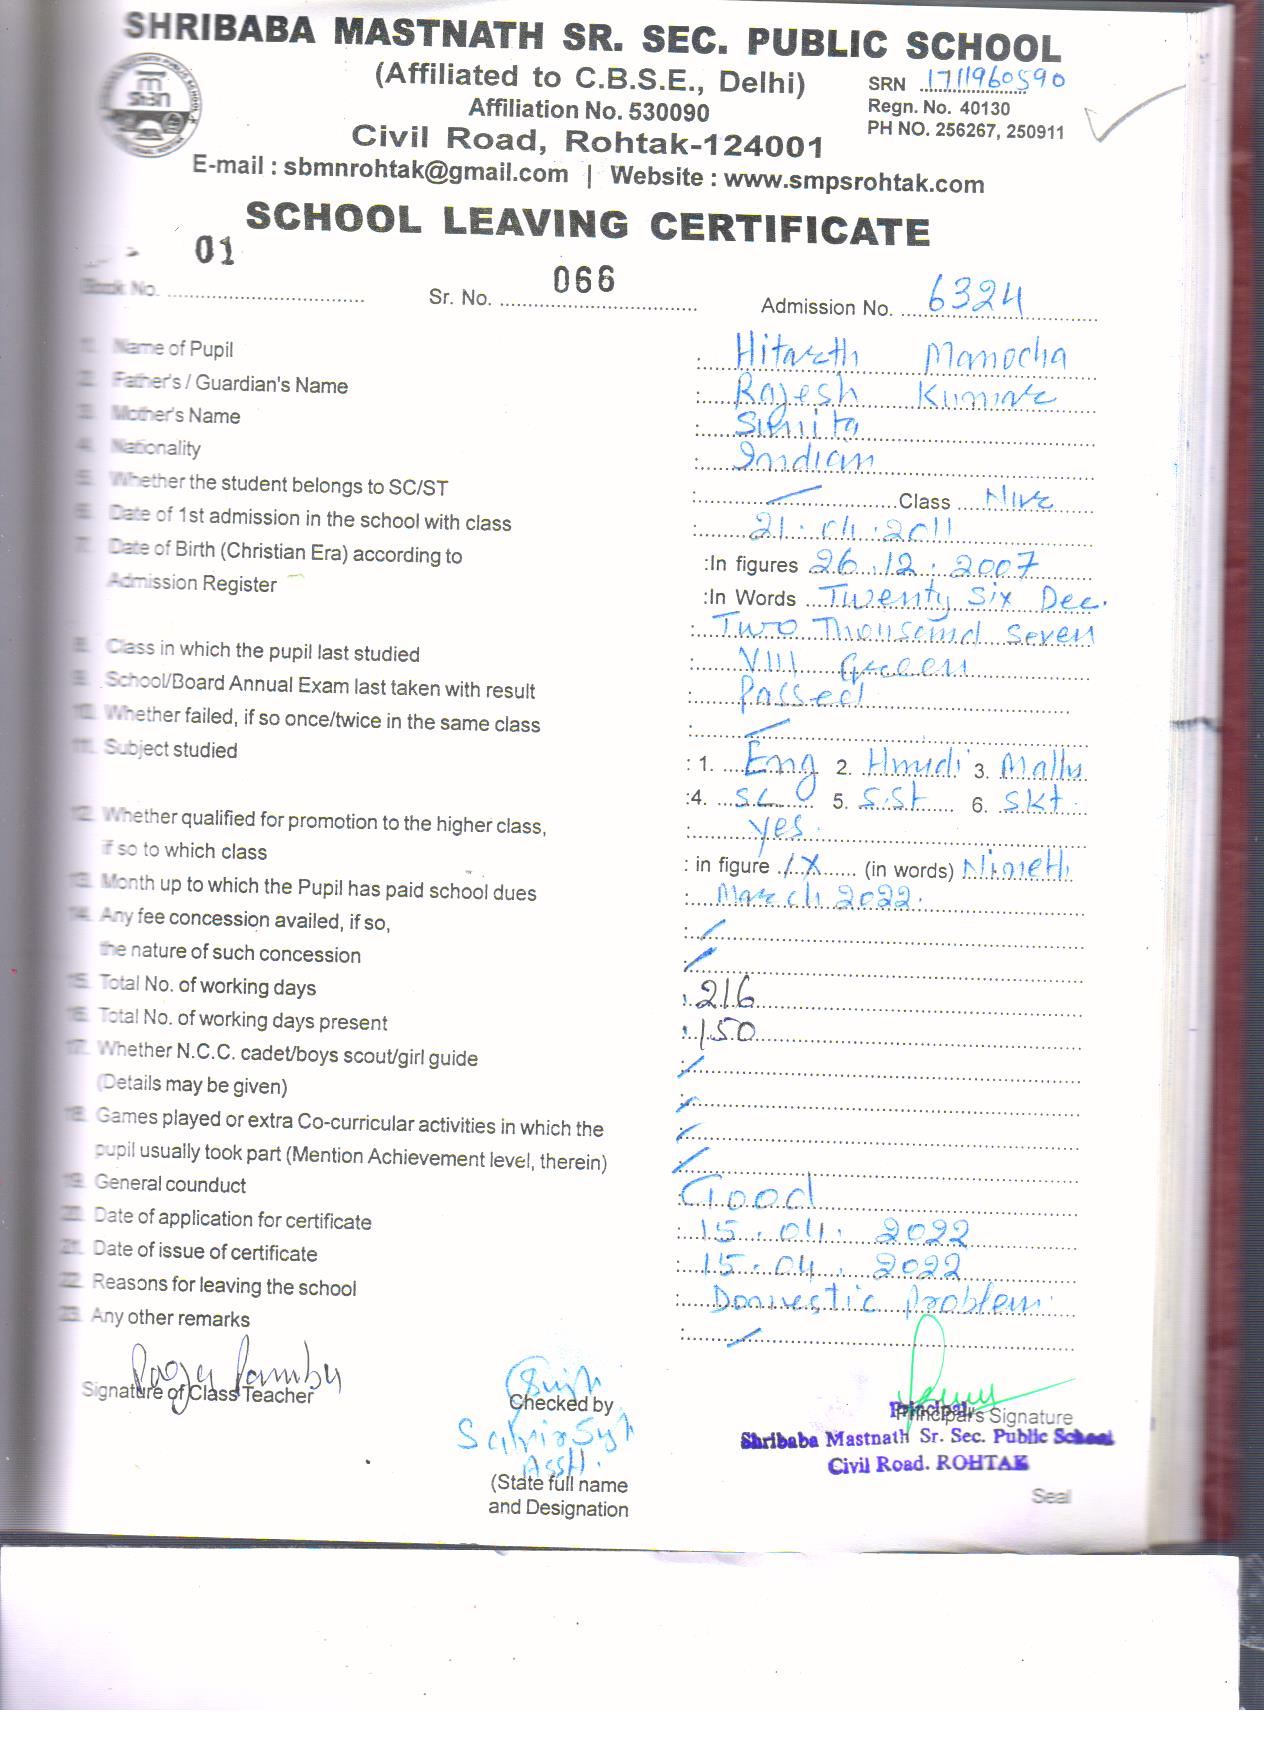 SHRIBABA MASTNATH SR. SEC. PUBLIC SCHOOL
(Affiliated to C.B.S.E., Delhi)
SRN 1711960590
Affiliation No. 530090
Regn. No. 40130
Civil Road, Rohtak-124001
PH NO. 256267, 250911
E-mail : sbmnrohtak@gmail.com | Website : www.smpsrohtak.com
SCHOOL LEAVING CERTIFICATE
Book No. 01 Sr. No. 066 Admission No. 6324
1. Name of Pupil : Hitarth Manocha
2. Father's / Guardian's Name : Rajesh Kumar
3. Mother's Name :
4. Nationality : Indian
5. Whether the student belongs to SC/ST : Class Nur
6. Date of 1st admission in the school with class : 21.04.2011
7. Date of Birth (Christian Era) according to :In figures 26.12.2007
Admission Register :In Words Twenty Six Dec.
: Two Thousand Seven
8. Class in which the pupil last studied : VIII Green
9. School/Board Annual Exam last taken with result : Passed
10. Whether failed, if so once/twice in the same class :
11. Subject studied : 1. Eng 2. Hindi 3. Maths
:4. SC 5. S.St 6. Skt.
12. Whether qualified for promotion to the higher class, : yes.
if so to which class : in figure IX (in words) Nineth
13. Month up to which the Pupil has paid school dues : March 2022.
14. Any fee concession availed, if so, :
the nature of such concession :
15. Total No. of working days : 216
16. Total No. of working days present : 150
17. Whether N.C.C. cadet/boys scout/girl guide :
(Details may be given) :
18. Games played or extra Co-curricular activities in which the :
pupil usually took part (Mention Achievement level, therein) :
19. General counduct : Good
20. Date of application for certificate : 15.04.2022
21. Date of issue of certificate : 15.04.2022
22. Reasons for leaving the school : Domestic Problem
23. Any other remarks :
Signature of Class Teacher
Checked by
Principal's Signature
Principal
Shribaba Mastnath Sr. Sec. Public School
Asstt.
Civil Road. ROHTAK
(State full name
Seal
and Designation